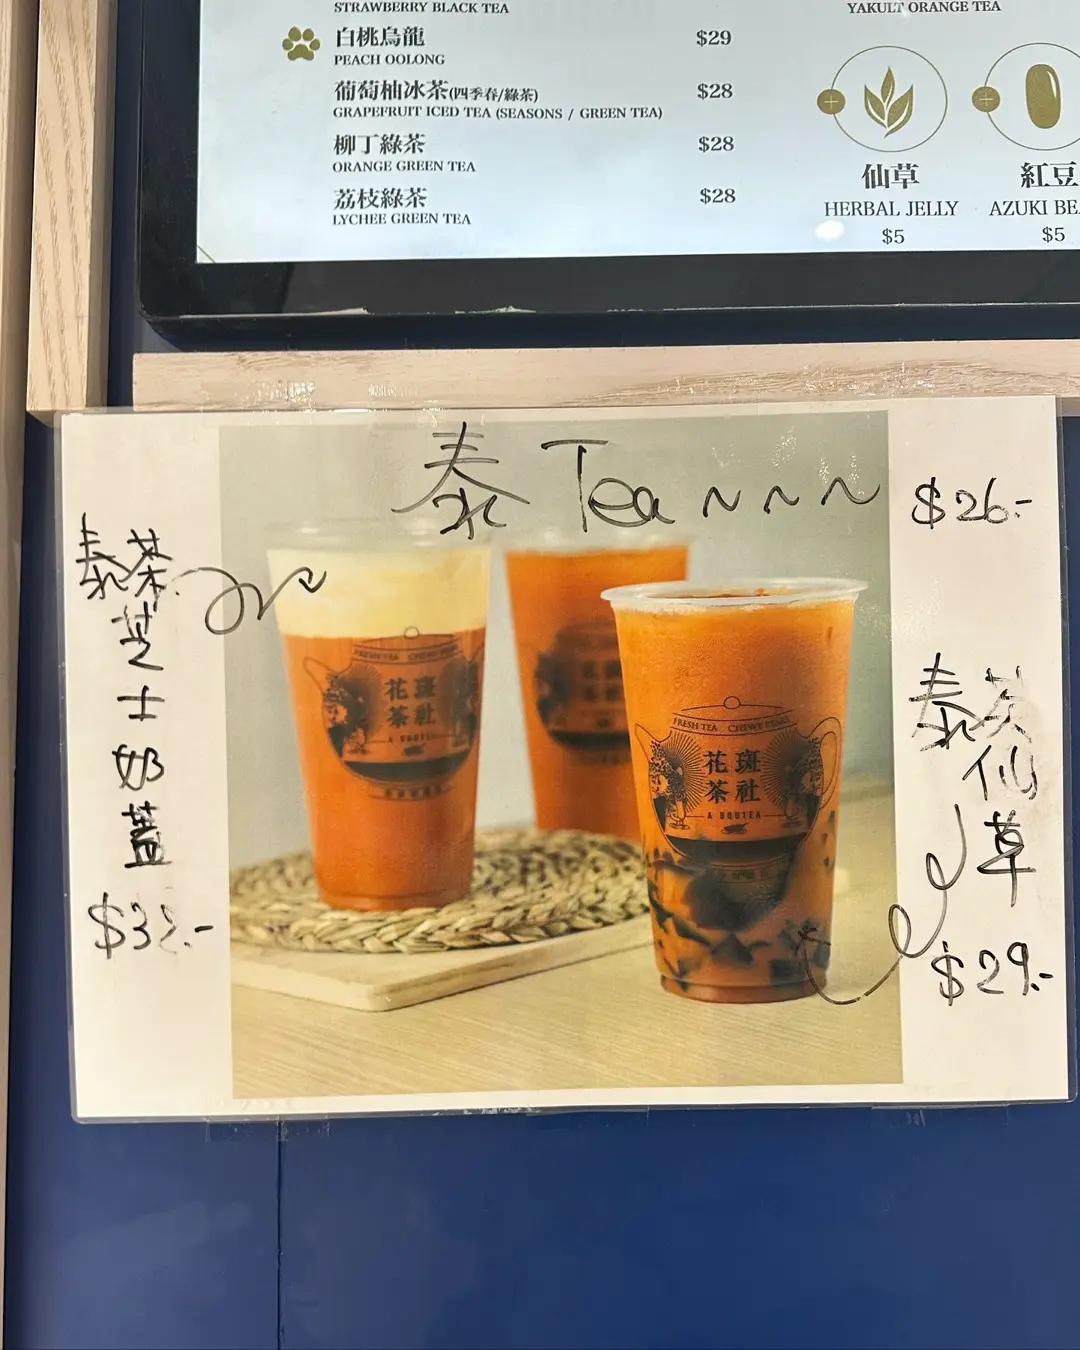 STRAWBERRY BLACK TEA
白桃烏龍 $29
PEACH OOLONG
葡萄柚冰茶(四季春/綠茶) $28
GRAPEFRUIT ICED TEA (SEASONS / GREEN TEA)
柳丁綠茶 $28
ORANGE GREEN TEA
荔枝綠茶 $28
LYCHEE GREEN TEA
YAKULT ORANGE TEA
仙草
HERBAL JELLY
$5
紅豆
AZUKI BEA
$5
泰Tea~~~
$26.-
泰茶
芝
士
奶
蓋
$32.-
泰茶
仙
草
$29.-
FRESH TEA CHEWY PEARL
花 斑
茶 社
A DOUTEA
FRESH TEA CHEWY PEARL
花 斑
茶 社
A DOUTEA